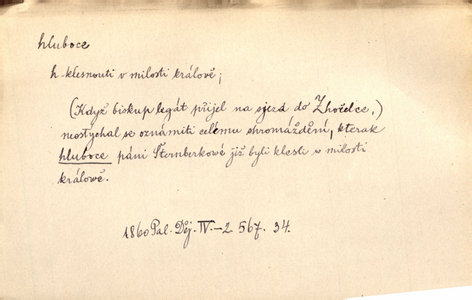 hluboce
h. klesnouti v milosti králově;
(Když biskup legát přijel na sjezd do Zhořelce,)
neostýchal se oznámiti celému shromáždění, kterak
hluboce páni Šternberkové již byli klesli v milosti
králově.
1860 Pal. Děj. IV-2 567. 34.